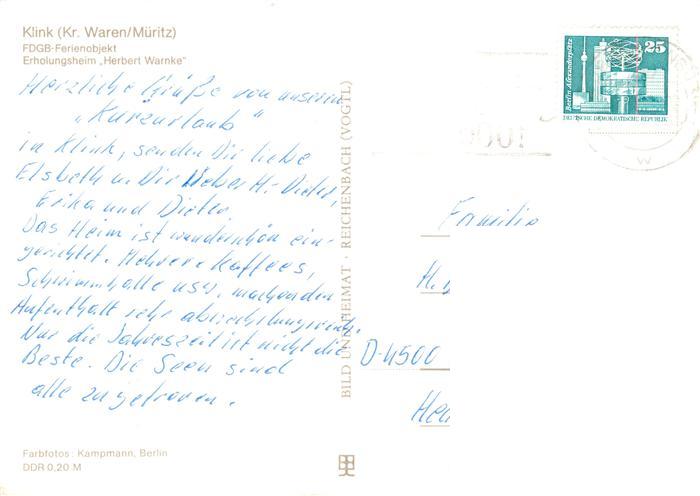 Klink (Kr. Waren/Müritz)
FDGB-Ferienobjekt
Erholungsheim „Herbert Warnke“
Herzliche Grüße von unserem
„Kurzurlaub“
in Klink, senden Dir liebe
Elsbeth u. Dir lieber H. Dieter,
Erika und Dieter.
Das Heim ist wunderschön ein-
gerichtet. Mehrere Kaffees,
Schwimmhalle usw. machen den
Aufenthalt sehr abwechslungsreich.
Nur die Jahreszeit ist nicht die
Beste. Die Seen sind
alle zugefroren.
Farbfotos: Kampmann, Berlin
DDR 0,20 M
BILD UND HEIMAT · REICHENBACH (VOGTL)
25
Berlin, Alexanderplatz
DEUTSCHE DEMOKRATISCHE REPUBLIK
W
Familie
H.
D-4500